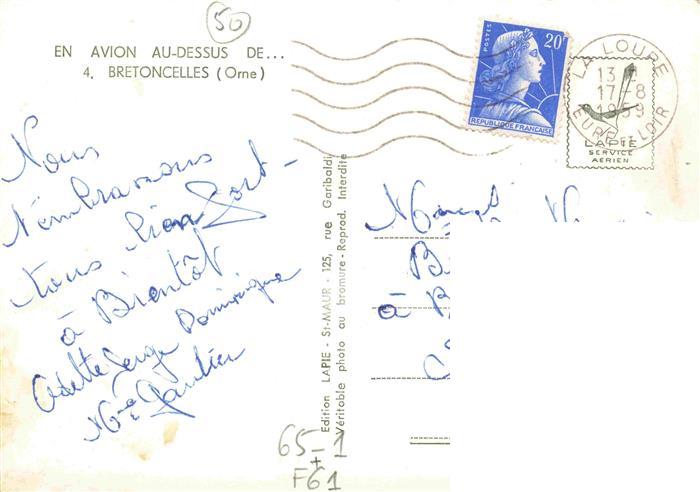 50
EN AVION AU-DESSUS DE...
4. BRETONCELLES (Orne)
POSTES
20F
REPUBLIQUE FRANÇAISE
LA LOUPE
13 H
17-8
1959
EURE ET LOIR
LAPIE
SERVICE
AERIEN
Nous
t'embrassons
tous bien fort
à Bientôt
Odette Serge Dominique
Mme Gautier
Edition LAPIE - St-MAUR - 125, rue Garibaldi
Véritable photo au bromure - Reprod. Interdite
à
65-1
+
F61